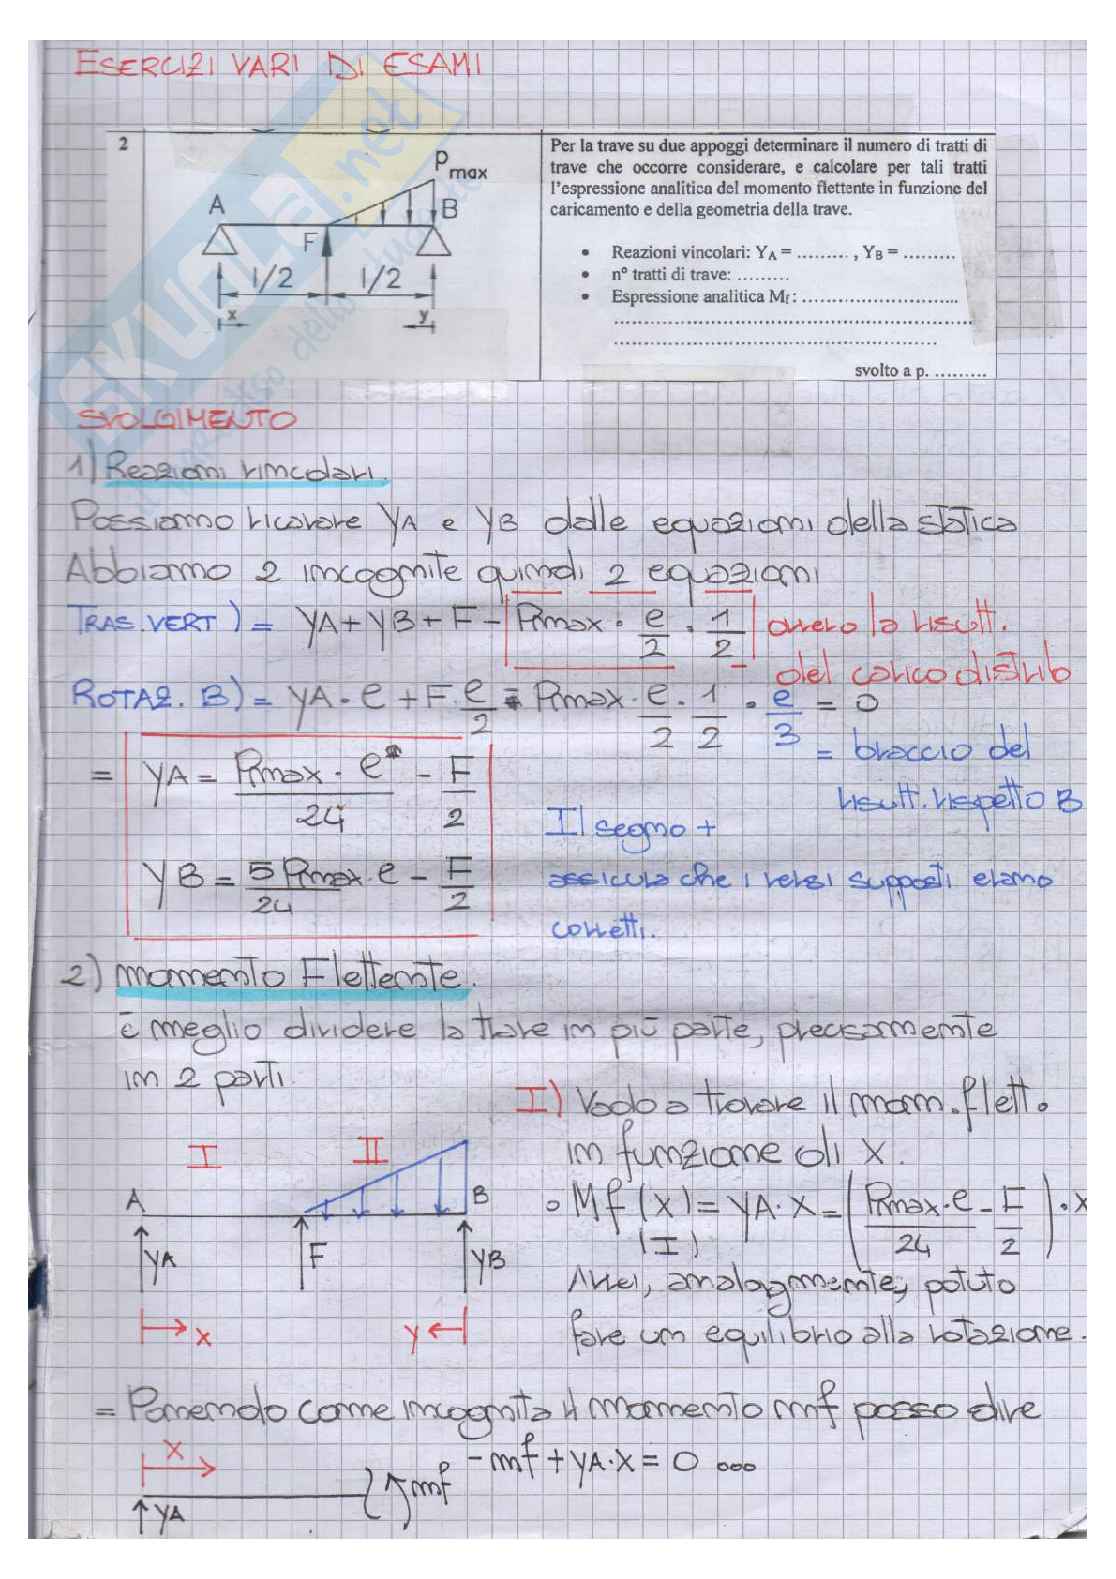 ESERCIZI VARI DI ESAMI
2
Pmax
A
B
F
l/2
l/2
x
y
Per la trave su due appoggi determinare il numero di tratti di
trave che occorre considerare, e calcolare per tali tratti
l'espressione analitica del momento flettente in funzione del
caricamento e della geometria della trave.
• Reazioni vincolari: YA = ........ , YB = .........
• n° tratti di trave: .........
• Espressione analitica Mf: ..........................
svolto a p. .........
SKUOLA.net
SVOLGIMENTO
1) Reazioni vincolari.
Possiamo ricavare YA e YB dalle equazioni della statica
Abbiamo 2 incognite quindi 2 equazioni
TRAS. VERT ) = YA + YB + F - Pmax · l/2 · 1/2 ovvero la risult. del carico distrib
ROTAZ. B) = YA · l + F · l/2 = Pmax · l/2 · 1/2 · l/3 = 0
= braccio del
risult. rispetto B
= YA = Pmax · l / 24 - F/2
YB = 5 Pmax · l / 24 - F/2
Il segno +
assicura che i versi supposti erano
corretti.
2) momento Flettente.
è meglio dividere la trave in più parte, precisamente
in 2 parti.
I II
A B
YA F YB
x y
I) Vado a trovare il mom. flett.
in funzione di x.
• Mf (x) (I) = YA · x = (Pmax · l / 24 - F/2) · x
Avrei, analogamente, potuto
fare un equilibrio alla rotazione.
= Ponendo come incognita il momento mf posso dire
x
YA mf
-mf + YA · x = 0 ...